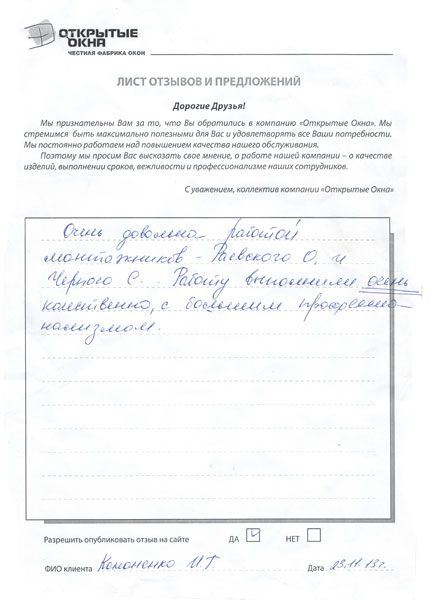 ОТКРЫТЫЕ
ОКНА
ЧЕСТНАЯ ФАБРИКА ОКОН
ЛИСТ ОТЗЫВОВ И ПРЕДЛОЖЕНИЙ
Дорогие Друзья!
Мы признательны Вам за то, что Вы обратились в компанию «Открытые Окна». Мы
стремимся быть максимально полезными для Вас и удовлетворять все Ваши потребности.
Мы постоянно работаем над повышением качества нашего обслуживания.
Поэтому мы просим Вас высказать свое мнение, о работе нашей компании – о качестве
изделий, выполнении сроков, вежливости и профессионализме наших сотрудников.
С уважением, коллектив компании «Открытые Окна»
Очень довольна работой
монтажников - Раевского О. и
Черного С. Работу выполнили очень
качественно, с большим профессио-
нализмом.
Разрешить опубликовать отзыв на сайте ДА НЕТ
ФИО клиента Кононенко И Г Дата 23.11.13г.